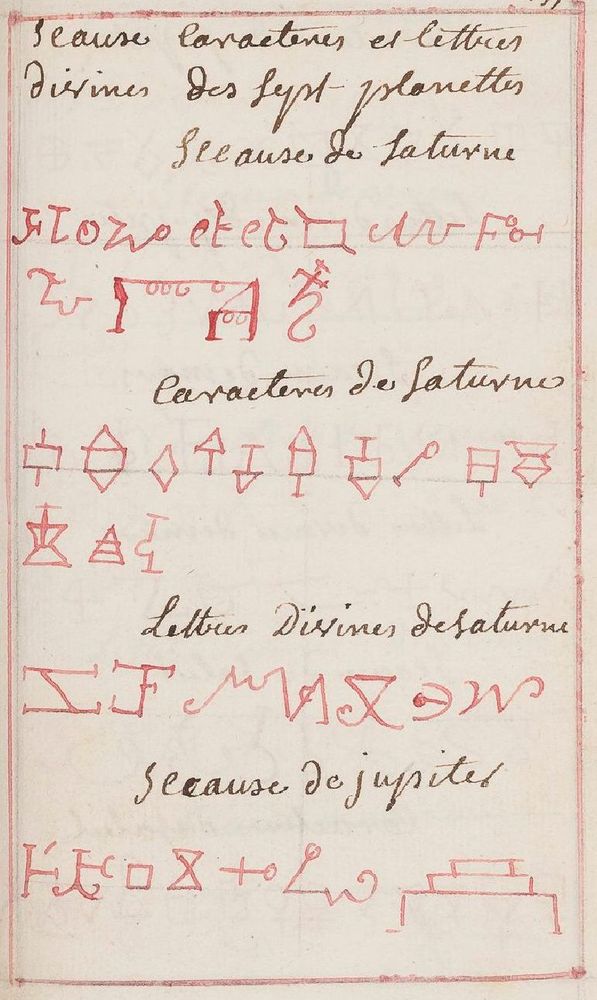 Sceause Caracteres et lettres
divines des Sept planettes
Sceause de Saturne
Caracteres de Saturne
Lettres Divines de Saturne
Sceause de jupiter